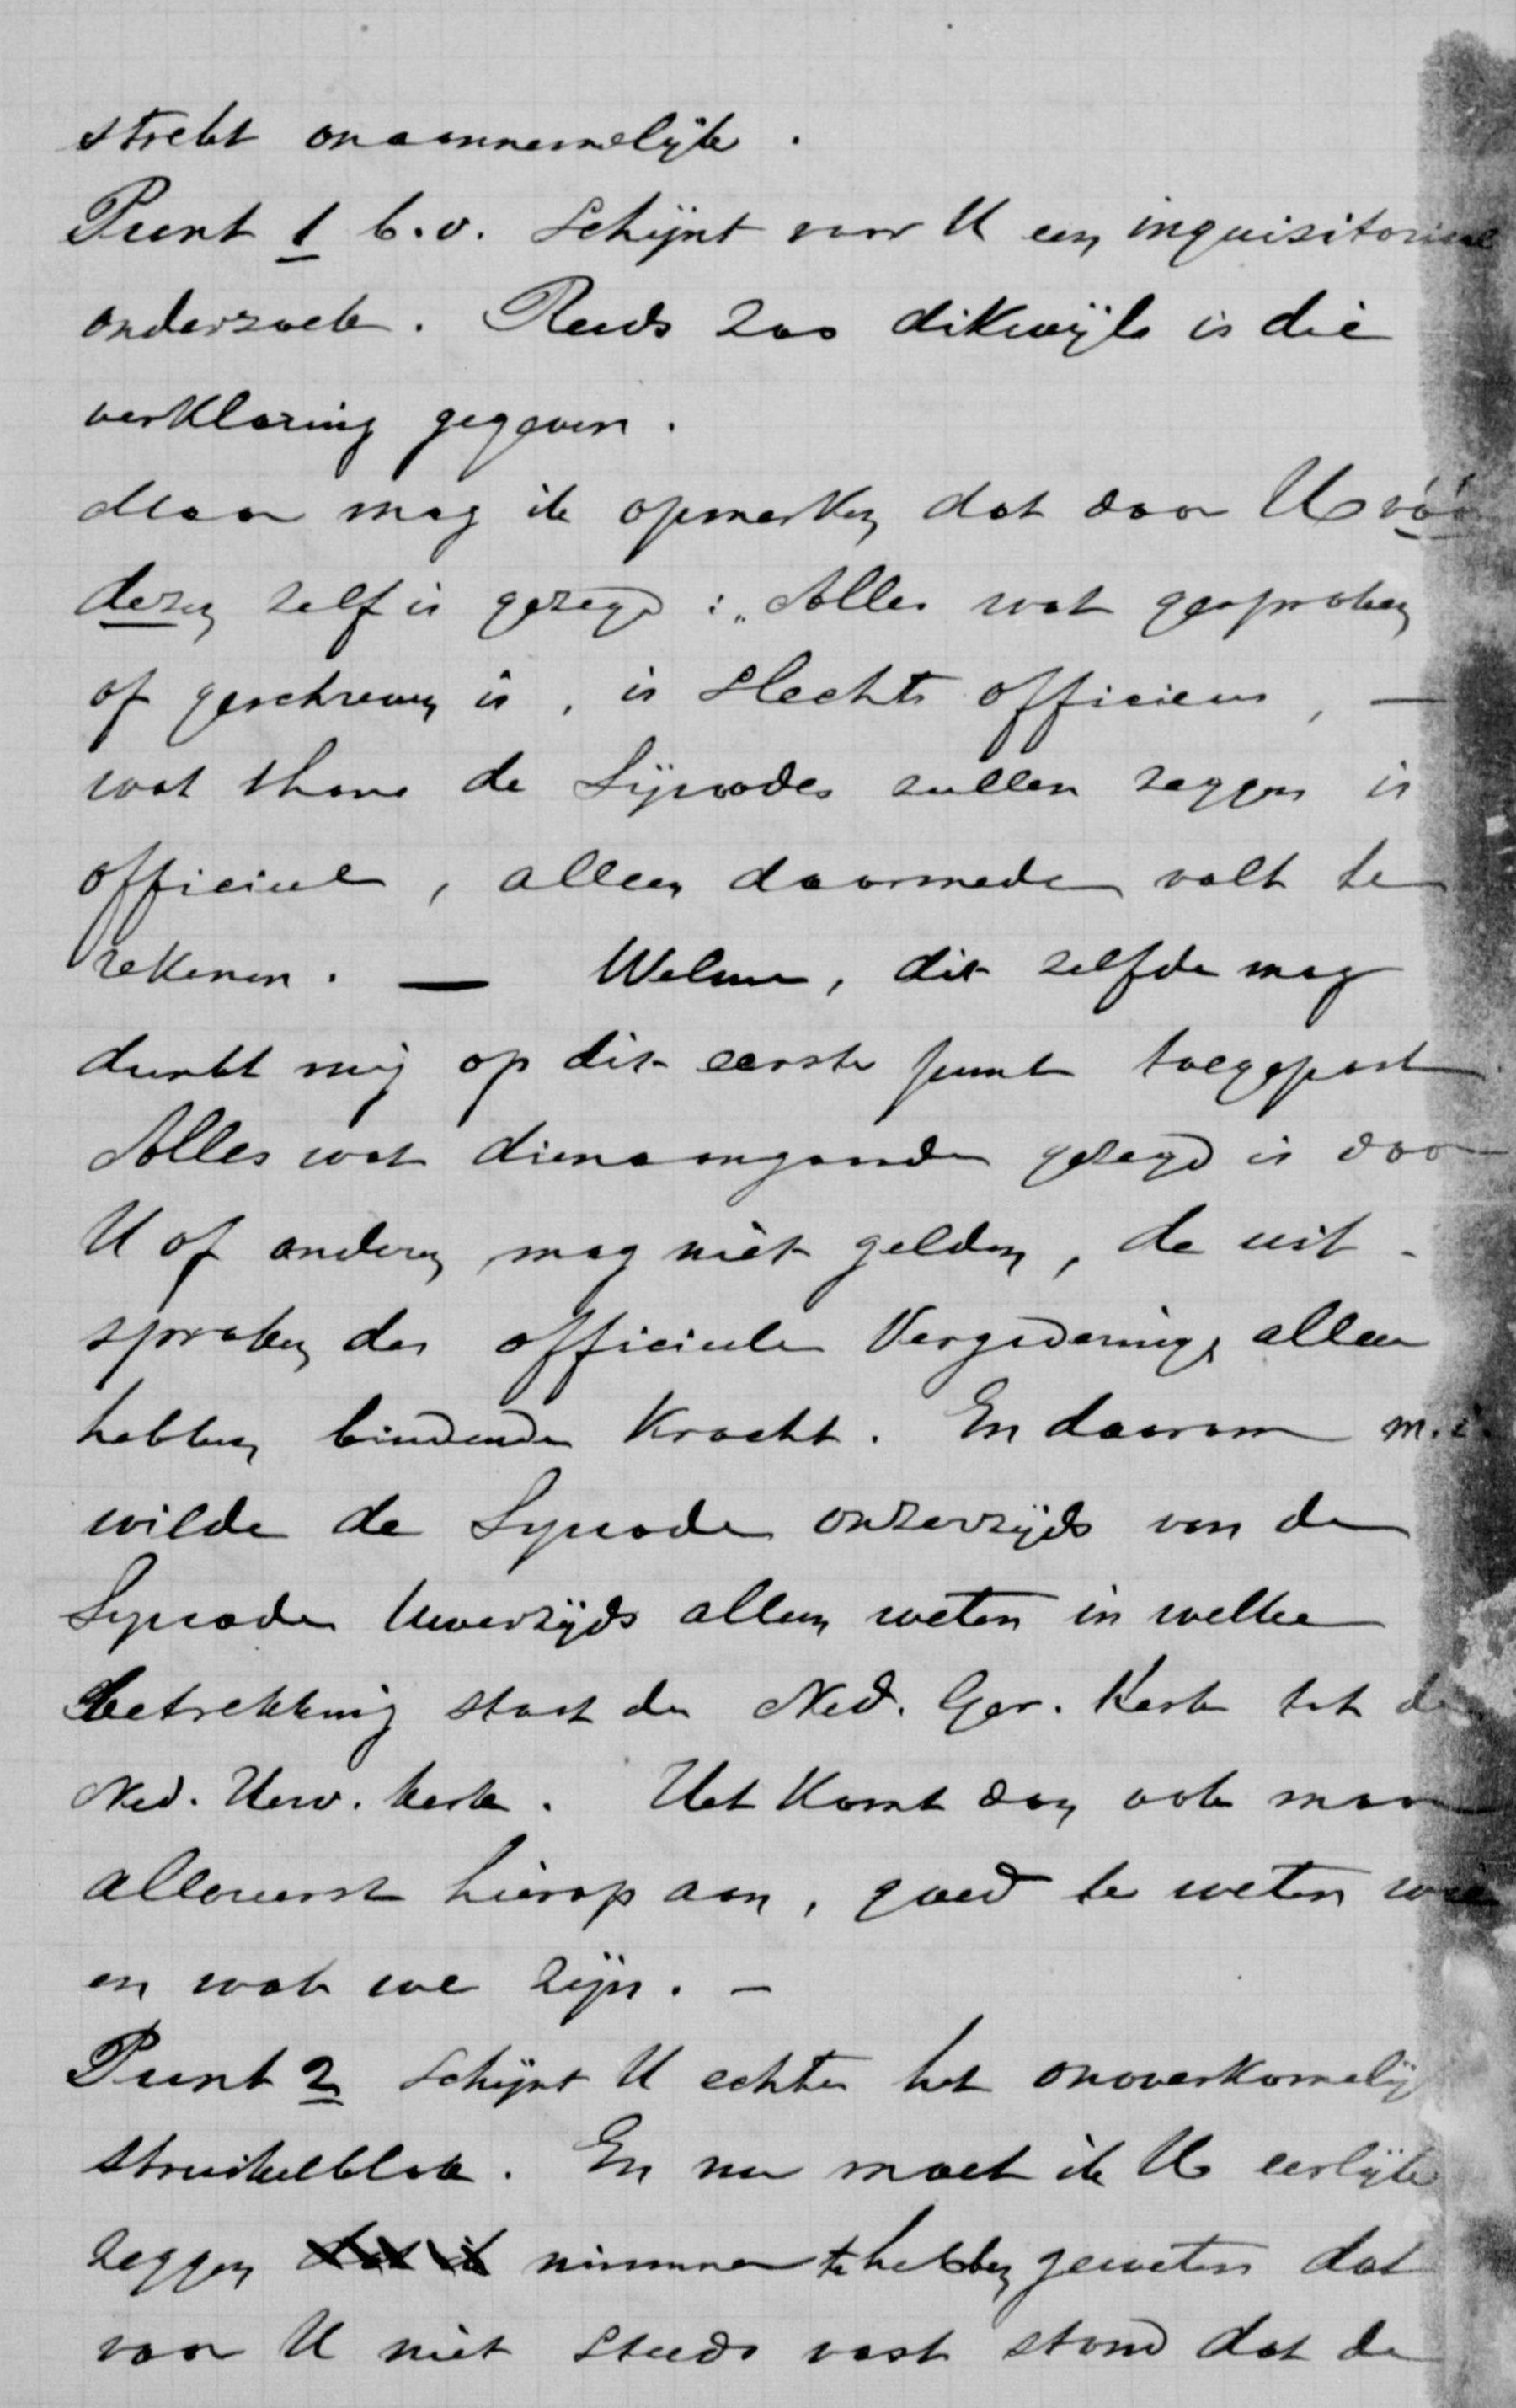 strekt onaannemelijk.
Punt 1 b.v. schijnt voor U een inquisitoriaal
onderzoek. Reeds zoo dikwijls is die
verklaring gegeven.
Maar mag ik opmerken dat door U vóór
dezen zelf is gezegd: „Alles wat gesproken
of geschreven is, is slechts officieus, —
wat thans de Sijnodes zullen zeggen is
officieel, alleen daarmede valt te
rekenen. — Welnu, dit zelfde mag
dunkt mij op dit eerste punt toegepast
Alles wat dienaangaande gezegd is door
U of anderen mag niet gelden, de uit-
spraken der officieele Vergadering alleen
hebben bindende kracht. En daarom m.i.
wilde de Synode onzerzijds van de
Synode Uwerzijds alleen weten in welke
betrekking staat de Ned. Ger. Kerk tot de
Ned. Herv. kerk. Het komt dan ook maar
allereerst hierop aan, goed te weten wie
en wat we zijn. —
Punt 2 schijnt U echter het onoverkomelijk
struikelblok. En nu moet ik U eerlijk
zeggen dat ik nimmer te hebben geweten dat
voor U niet steeds vast stond dat de